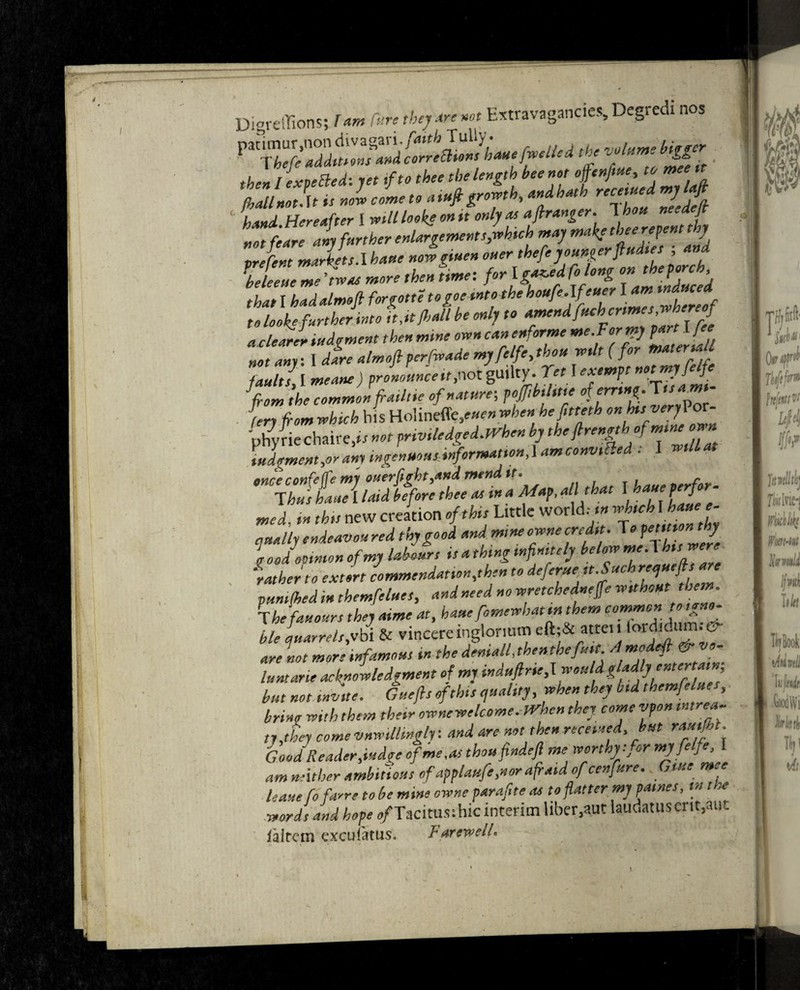 Digressions; I am sure they are not Extravagancies, Degredi nos
patimur, non divagari, faith Tully.
These additions and corrections haue swelled the volume bigger
then I expected: yet if to thee the length bee not offensiue, to mee it
shall not. It is now come to a iust growth, and hath receiued my last
hand. Hereafter I will looke on it only as a stranger. Thou needest
not feare any further enlargements, which may make thee repent thy
present markets. I haue now giuen ouer these younger studies ; and
beleeue me 'twas more then time: for I gazed so long on the porch,
that I had almost forgottē to goe into the house. If euer I am induced
to looke further into it, it shall be only to amend such crimes, whereof
a clearer iudgment then mine own can enforme me. For my part I see
not any: I dare almost perswade my selfe, thou wilt (for materiall
faults, I meane) pronounce it, not guilty. Yet I exempt not my selfe
from the common frailtie of nature; possibilitie of erring. Tis a mi-
sery from which his Holinesse, euen when he sitteth on his very Por-
phyrie chaire, is not priviledged. When by the strength of mine own
iudgment, or any ingenuous information, I am convicted : I will at
once confesse my ouersight, and mend it.
Thus haue I laid before thee as in a Map, all that I haue perfor-
med, in this new creation of this Little world: in which I haue e-
qually endeavoured thy good and mine owne credit. To petition thy
good opinion of my labours is a thing infinitely below me. This were
rather to extort commendation, then to deserue it. Such requests are
punished in themselues, and need no wretchednesse without them.
The fauours they aime at, haue somewhat in them common to igno-
ble quarrels, vbi & vincere inglorium est; & atteri sordidum: &
are not more infamous in the deniall, then the suit. A modest & vo-
luntarie acknowledgment of my industrie, I would gladly entertain;
but not invite. Guests of this quality, when they bid themselues,
bring with them their owne welcome. When they come vpon intrea-
ty, they come vnwillingly: and are not then receiued, but rauisht.
Good Reader, iudge of me, as thou findest me worthy: for my selfe, I
am neither ambitious of applause, nor afraid of censure. Giue mee
leaue so farre to be mine owne parasite as to flatter my paines, in the
words and hope of Tacitus: hic interim liber, aut laudatus erit, aut
saltem excusatus. Farewell.